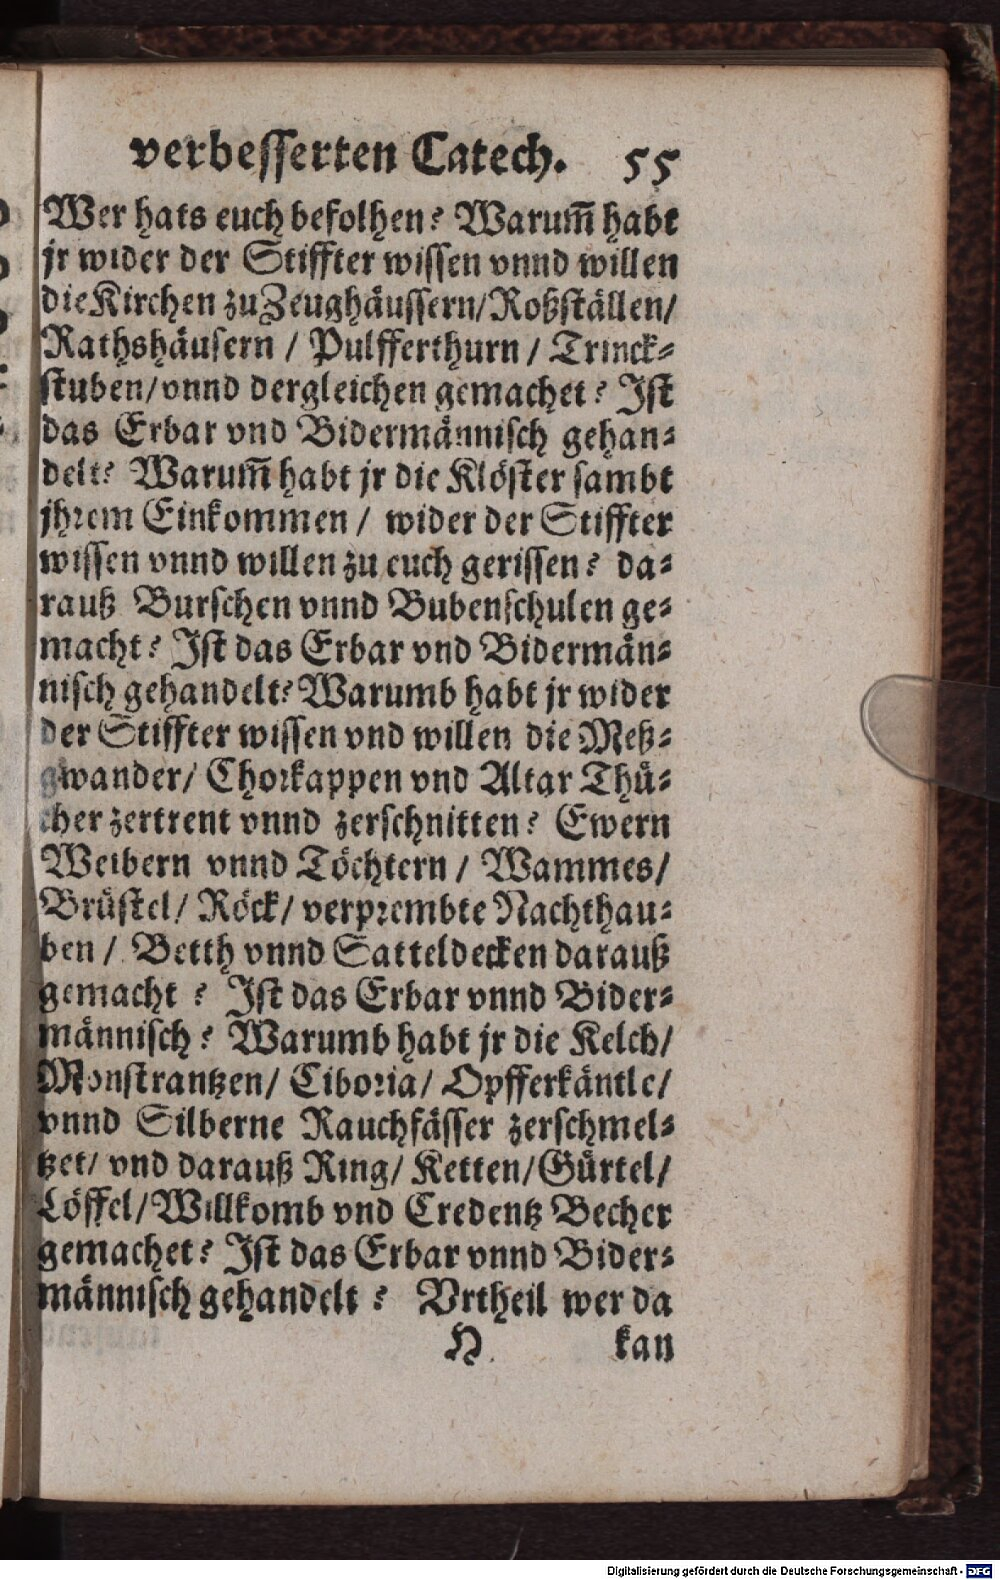 verbesserten Catech. 55
Wer hats euch befolhen? Warum̃ habt
jr wider der Stiffter wissen vnnd willen
die Kirchen zu Zeughäussern/ Roßställen/
Rathshäusern / Pulfferthurn / Trinck⸗
stuben/ vnnd dergleichen gemachet? Ist
das Erbar vnd Bidermännisch gehan⸗
delt? Warum̃ habt jr die Klöster sambt
jhrem Einkommen / wider der Stiffter
wissen vnnd willen zu euch gerissen? da⸗
rauß Burschen vnnd Bubenschulen ge⸗
macht? Ist das Erbar vnd Bidermän⸗
nisch gehandelt? Warumb habt jr wider
der Stiffter wissen vnd willen die Meß⸗
gwander/ Chorkappen vnd Altar Thü⸗
cher zertrent vnnd zerschnitten? Ewern
Weibern vnnd Töchtern / Wammes/
Brüstel/ Röck/ verprembte Nachthau⸗
ben / Betth vnnd Satteldecken darauß
gemacht? Ist das Erbar vnnd Bider⸗
männisch? Warumb habt jr die Kelch/
Monstrantzen/ Ciboria/ Opfferkäntle/
vnnd Silberne Rauchfässer zerschmel⸗
tzet/ vnd darauß Ring/ Ketten/ Gürtel/
Löffel/ Willkomb vnd Credentz Becher
gemachet? Ist das Erbar vnnd Bider⸗
männisch gehandelt? Vrtheil wer da
H kan
Digitalisierung gefördert durch die Deutsche Forschungsgemeinschaft - DFG